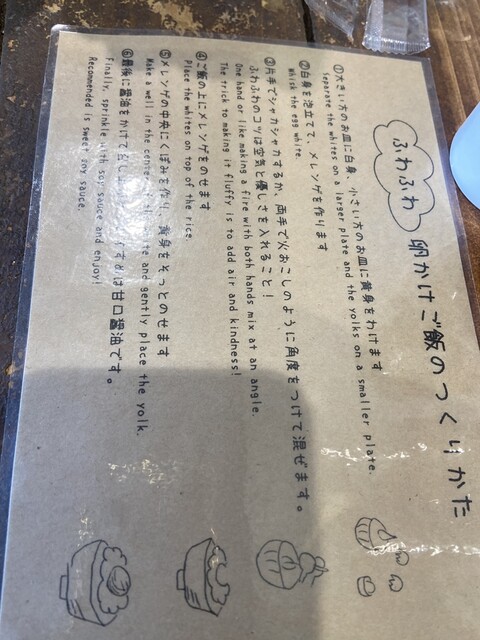 ふわふわ 卵かけご飯のつくりかた
①大きい方のお皿に白身、小さい方のお皿に黄身をわけます
Separate the whites on a larger plate and the yolks on a smaller plate.
②白身を泡立てて、メレンゲを作ります
Whisk the egg white.
③片手でシャカシャカするか、両手で火おこしのように角度をつけて混ぜます。
ふわふわのコツは空気と優しさを入れること！
One hand or like making a fire with both hands mix at an angle.
The trick to making it fluffy is to add air and kindness!
④ご飯の上にメレンゲをのせます
Place the whites on top of the rice.
⑤メレンゲの中央にくぼみを作り、黄身をそっとのせます
Make a well in the center of the white and gently place the yolk.
⑥最後に醤油をかけて召し上 すすめは甘口醤油です。
Finally, sprinkle with soy sauce and enjoy!
Recommended is sweet soy sauce.